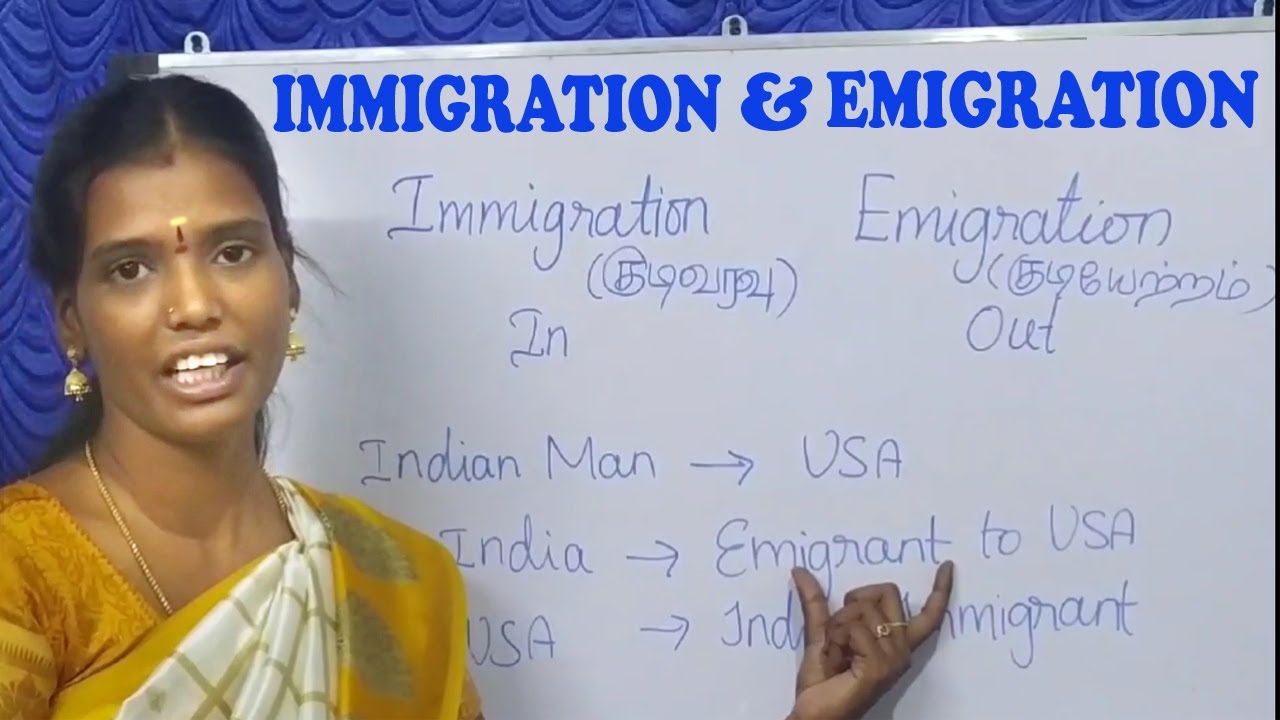 IMMIGRATION & EMIGRATION
Immigration Emigration
(குடிவரவு) (குடியேற்றம்)
In Out
Indian Man → USA
India → Emigrant to USA
USA → Immigrant